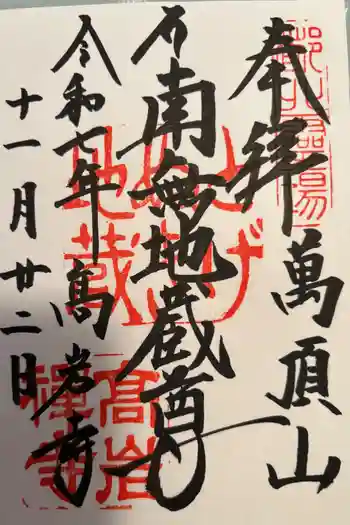 奉拜 萬頂山
南無地蔵尊
令和七年 髙岩寺
十一月廿二日
とげ
ぬき
地蔵
髙岩
禅寺